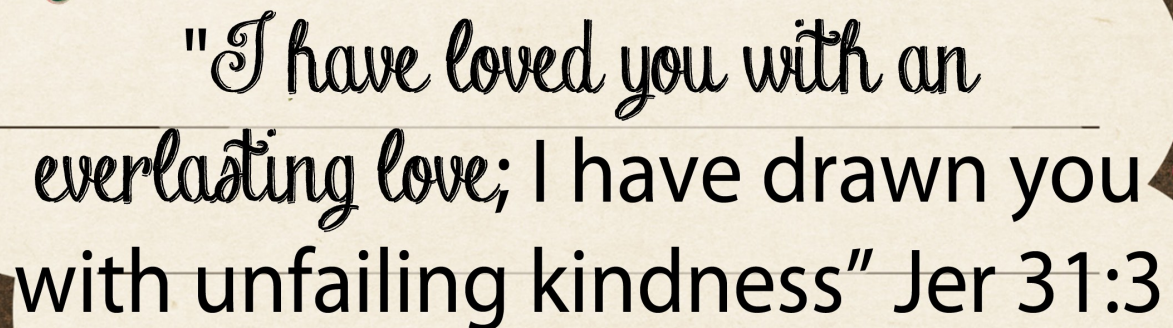 "I have loved you with an
everlasting love; I have drawn you
with unfailing kindness” Jer 31:3